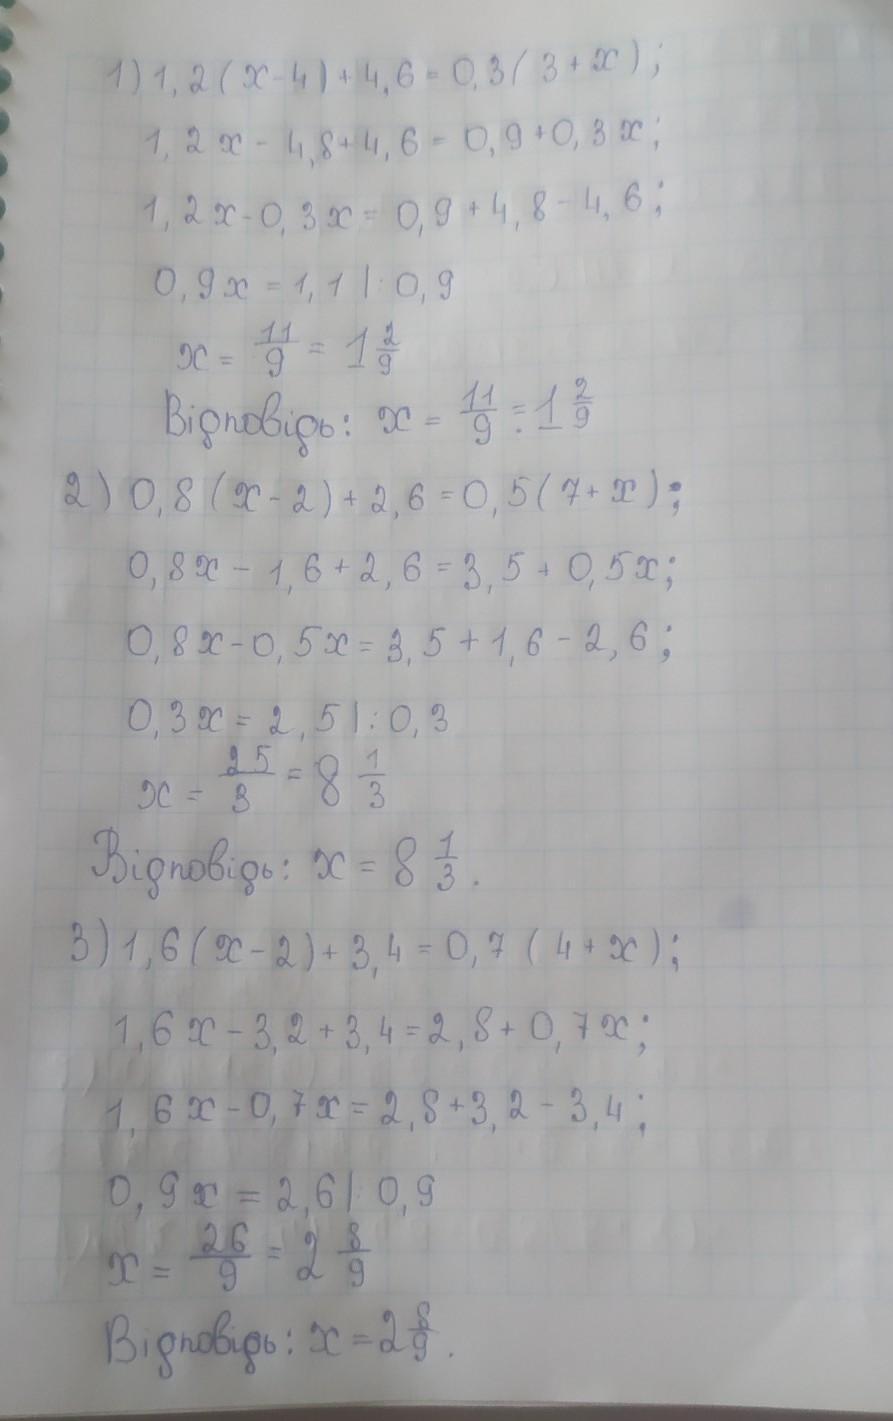 1) 1,2(x-4)+4,6=0,3(3+x);
1,2x-4,8+4,6=0,9+0,3x;
1,2x-0,3x=0,9+4,8-4,6;
0,9x=1,1|:0,9
x=11/9=1 2/9
Відповідь: x=11/9=1 2/9
2) 0,8(x-2)+2,6=0,5(7+x);
0,8x-1,6+2,6=3,5+0,5x;
0,8x-0,5x=3,5+1,6-2,6;
0,3x=2,5|:0,3
x=25/3=8 1/3
Відповідь: x=8 1/3.
3) 1,6(x-2)+3,4=0,7(4+x);
1,6x-3,2+3,4=2,8+0,7x;
1,6x-0,7x=2,8+3,2-3,4;
0,9x=2,6|:0,9
x=26/9=2 8/9
Відповідь: x=2 8/9.